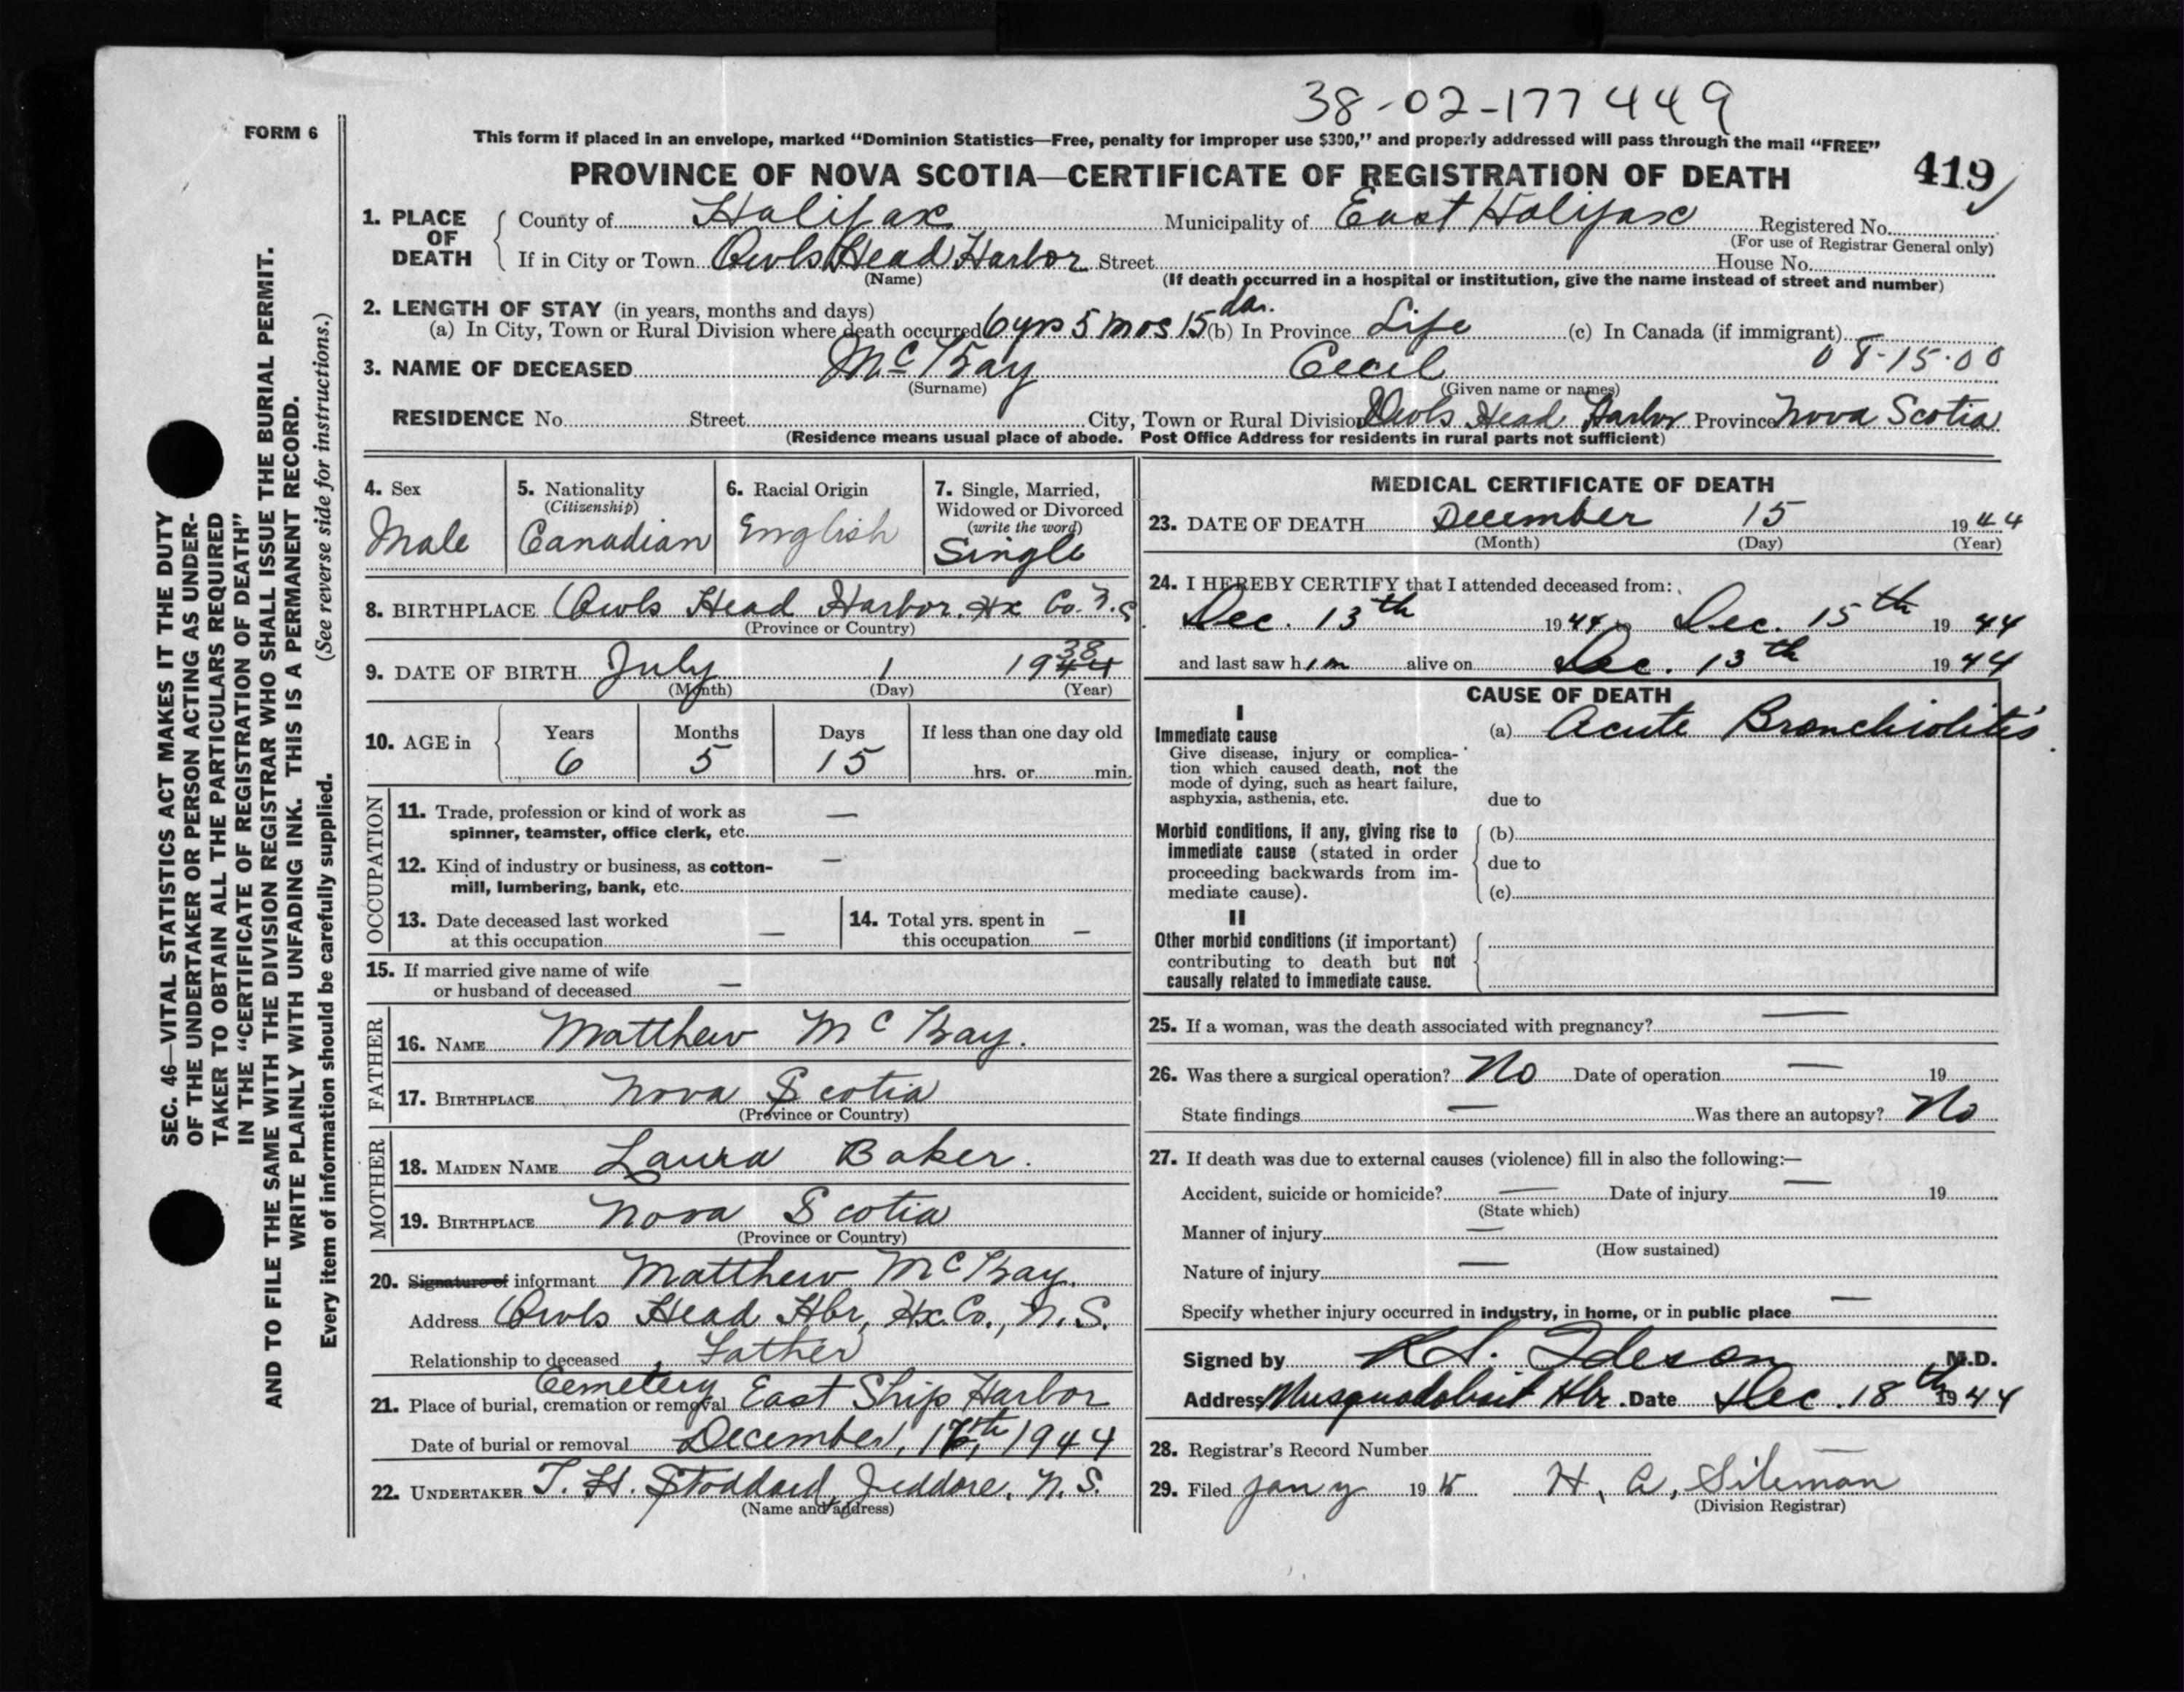 38-02-177449
FORM 6
This form if placed in an envelope, marked “Dominion Statistics—Free, penalty for improper use $300,” and properly addressed will pass through the mail “FREE”
PROVINCE OF NOVA SCOTIA—CERTIFICATE OF REGISTRATION OF DEATH
419
1. PLACE OF DEATH
County of Halifax Municipality of East Halifax Registered No.
(For use of Registrar General only)
If in City or Town Owls Head Harbor Street House No.
(Name) (If death occurred in a hospital or institution, give the name instead of street and number)
2. LENGTH OF STAY (in years, months and days)
(a) In City, Town or Rural Division where death occurred 6 yrs 5 mos 15 da. (b) In Province Life (c) In Canada (if immigrant)
08-15-00
3. NAME OF DECEASED McKay Cecil
(Surname) (Given name or names)
RESIDENCE No. Street City, Town or Rural Division Owls Head Harbor Province Nova Scotia
(Residence means usual place of abode. Post Office Address for residents in rural parts not sufficient)
4. Sex
Male
5. Nationality
(Citizenship)
Canadian
6. Racial Origin
English
7. Single, Married,
Widowed or Divorced
(write the word)
Single
8. BIRTHPLACE Owls Head Harbor. Hx Co. N.S
(Province or Country)
9. DATE OF BIRTH July 1 1938 44
(Month) (Day) (Year)
10. AGE in
Years Months Days If less than one day old
6 5 15 hrs. or min.
OCCUPATION
11. Trade, profession or kind of work as
spinner, teamster, office clerk, etc. —
12. Kind of industry or business, as cotton-
mill, lumbering, bank, etc. —
13. Date deceased last worked
at this occupation —
14. Total yrs. spent in
this occupation —
15. If married give name of wife
or husband of deceased —
FATHER
16. NAME Matthew McKay.
17. BIRTHPLACE Nova Scotia
(Province or Country)
MOTHER
18. MAIDEN NAME Laura Baker.
19. BIRTHPLACE Nova Scotia
(Province or Country)
20. Signature of informant Matthew McKay.
Address Owls Head Hbr, Hx. Co., N.S.
Relationship to deceased Father
Cemetery
21. Place of burial, cremation or removal East Ship Harbor
Date of burial or removal December, 17th, 1944
22. UNDERTAKER T. H. Stoddard, Jeddore, N.S.
(Name and address)
MEDICAL CERTIFICATE OF DEATH
23. DATE OF DEATH December 15 1944
(Month) (Day) (Year)
24. I HEREBY CERTIFY that I attended deceased from:
Dec. 13th 1944 to Dec. 15th 1944
and last saw him alive on Dec. 13th 1944
CAUSE OF DEATH
I
Immediate cause
Give disease, injury or complica-
tion which caused death, not the
mode of dying, such as heart failure,
asphyxia, asthenia, etc.
(a) Acute Bronchiolitis
due to
Morbid conditions, if any, giving rise to
immediate cause (stated in order
proceeding backwards from im-
mediate cause).
(b)
due to
(c)
II
Other morbid conditions (if important)
contributing to death but not
causally related to immediate cause.
25. If a woman, was the death associated with pregnancy? —
26. Was there a surgical operation? No Date of operation — 19
State findings — Was there an autopsy? No
27. If death was due to external causes (violence) fill in also the following:—
Accident, suicide or homicide? — Date of injury — 19
(State which)
Manner of injury —
(How sustained)
Nature of injury —
Specify whether injury occurred in industry, in home, or in public place —
Signed by M.D.
Address Musquodoboit Hbr. Date Dec. 18th 1944
28. Registrar's Record Number —
29. Filed 19 H. A. Siteman
(Division Registrar)
SEC. 46—VITAL STATISTICS ACT MAKES IT THE DUTY
OF THE UNDERTAKER OR PERSON ACTING AS UNDER-
TAKER TO OBTAIN ALL THE PARTICULARS REQUIRED
IN THE “CERTIFICATE OF REGISTRATION OF DEATH”
AND TO FILE THE SAME WITH THE DIVISION REGISTRAR WHO SHALL ISSUE THE BURIAL PERMIT.
WRITE PLAINLY WITH UNFADING INK. THIS IS A PERMANENT RECORD.
Every item of information should be carefully supplied. (See reverse side for instructions.)